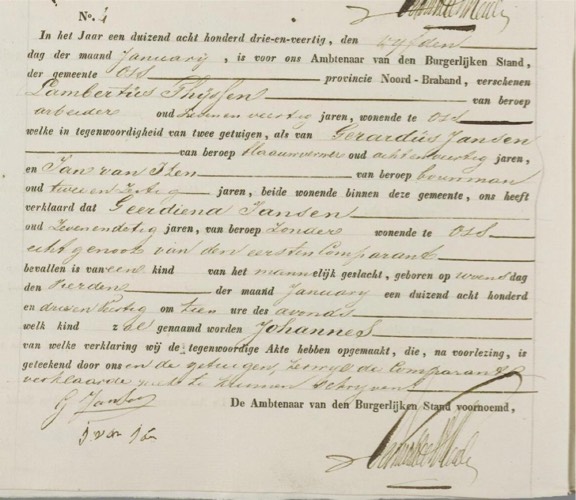 No. 4
In het Jaar een duizend acht honderd drie-en-veertig, den vyfden
dag der maand January, is voor ons Ambtenaar van den Burgerlijken Stand,
der gemeente Oss provincie Noord-Braband, verschenen
Lambertus Thyssen van beroep
arbeider oud zevenenveertig jaren, wonende te Oss
welke in tegenwoordigheid van twee getuigen, als van Gerardus Jansen
van beroep oud achtenveertig jaren,
en Jan van van beroep bouwman
oud tweeenzestig jaren, beide wonende binnen deze gemeente, ons heeft
verklaard dat Geerdiena Jansen
oud zevenendertig jaren, van beroep zonder wonende te Oss
echtgenoot van den eersten Comparant
bevallen is van een kind van het mannelijk geslacht, geboren op woensdag
den vierden der maand January een duizend acht honderd
en drieenveertig om tien ure des avonds
welk kind zal genaamd worden Johannes
van welke verklaring wij de tegenwoordige Akte hebben opgemaakt, die, na voorlezing, is
geteekend door ons en de getuigen, terwyl de Comparant
verklaarde niet te kunnen schryven
De Ambtenaar van den Burgerlijken Stand voornoemd,
G Jansen